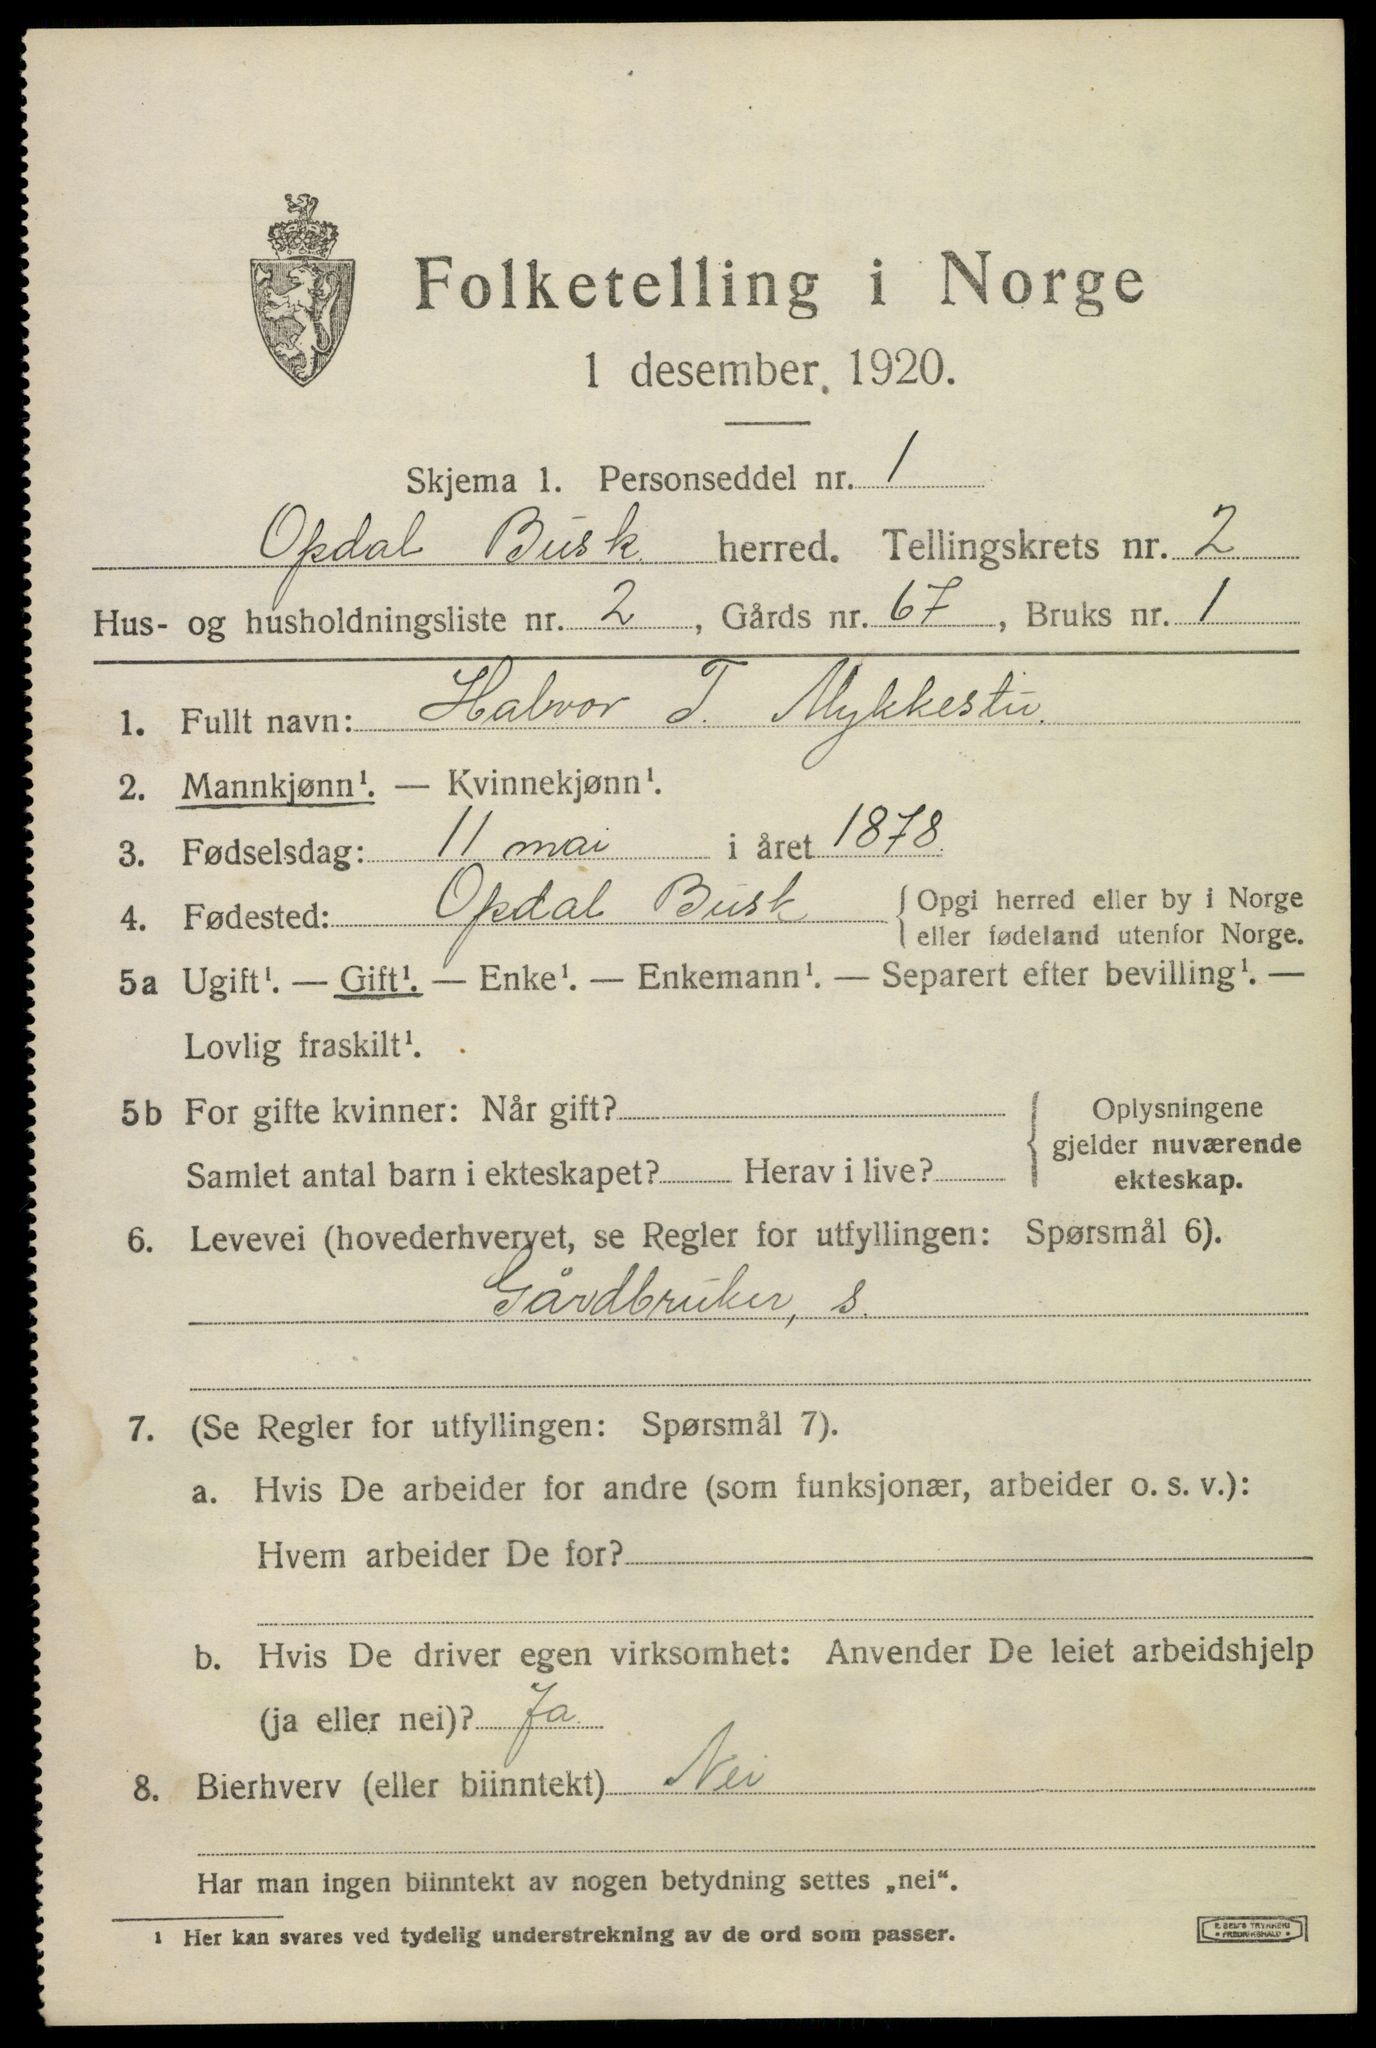 Folketelling i Norge
1 desember 1920.
Skjema 1. Personseddel nr. 1
Opdal Busk. herred. Tellingskrets nr. 2
Hus- og husholdningsliste nr. 2, Gårds nr. 67, Bruks nr. 1
1. Fullt navn: Halvor T. Mykkestu.
2. Mannkjønn¹. — Kvinnekjønn¹.
3. Fødselsdag: 11 mai i året 1878.
4. Fødested: Opdal Busk. Opgi herred eller by i Norge
eller fødeland utenfor Norge.
5a Ugift¹. — Gift¹. — Enke¹. — Enkemann¹. — Separert efter bevilling¹. —
Lovlig fraskilt¹.
5b For gifte kvinner: Når gift?
Samlet antal barn i ekteskapet? Herav i live?
Oplysningene
gjelder nuværende
ekteskap.
6. Levevei (hovederhvervet, se Regler for utfyllingen: Spørsmål 6).
Gårdbruker, s.
7. (Se Regler for utfyllingen: Spørsmål 7).
a. Hvis De arbeider for andre (som funksjonær, arbeider o. s. v.):
Hvem arbeider De for?
b. Hvis De driver egen virksomhet: Anvender De leiet arbeidshjelp
(ja eller nei)? Ja
8. Bierhverv (eller biinntekt) Nei
Har man ingen biinntekt av nogen betydning settes „nei“.
¹ Her kan svares ved tydelig understrekning av de ord som passer.
E. SEM'S TRYKKERI
* FREDRIKSHALD *